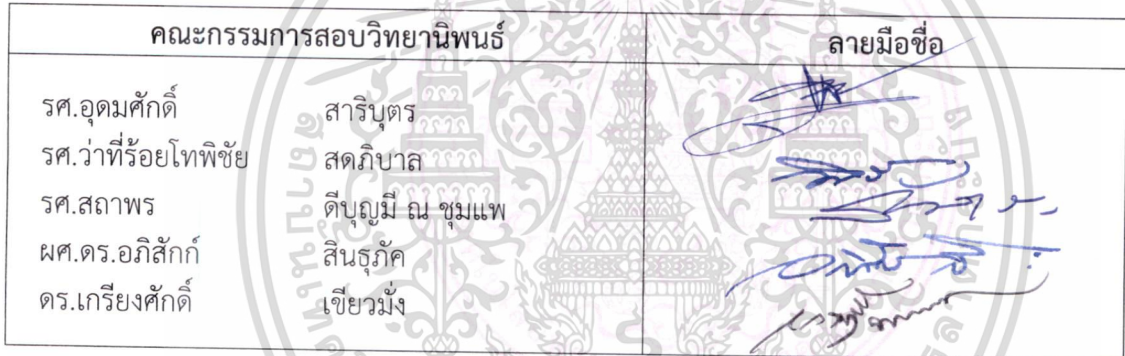 คณะกรรมการสอบวิทยานิพนธ์ ลายมือชื่อ
รศ.อุดมศักดิ์ สาริบุตร
รศ.ว่าที่ร้อยโทพิชัย สดภิบาล
รศ.สถาพร ดีบุญมี ณ ชุมแพ
ผศ.ดร.อภิสักก์ สินธุภัค
ดร.เกรียงศักดิ์ เขียวมั่ง